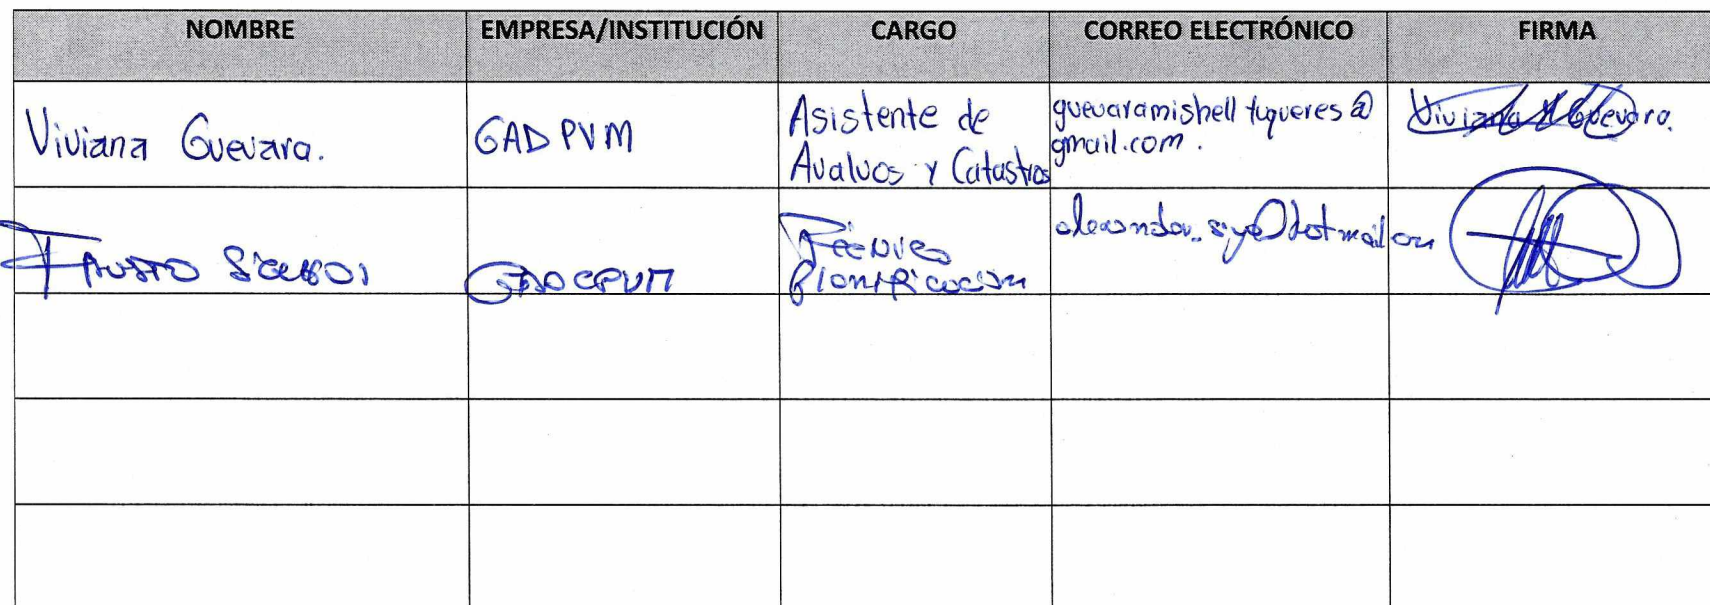 NOMBRE EMPRESA/INSTITUCIÓN CARGO CORREO ELECTRÓNICO FIRMA
Viviana Guevara. GAD PVM Asistente de
Avaluos y Catastros guevaramishelltuqueres@
gmail.com. Viviana Guevara.
FAUSTO GADCPVM Técnico
Planificación